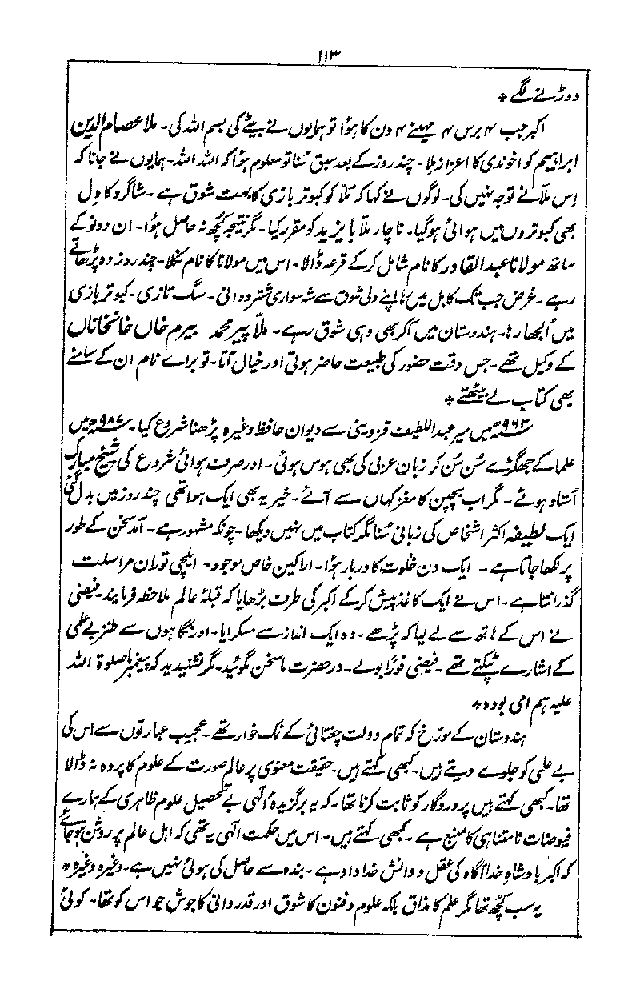 ۱۱۳
دوڑنے لگے *
اکبر جب ۴ برس ۴ مہینے ۴ دن کا ہؤا تو ہمایوں نے بیٹے کی بسم اللہ کی۔ ملا عصام الدین
ابراہیم کو اخوندی کا اعزاز ملا۔ چند روز کے بعد سبق سنا تو معلوم ہؤا کہ اللہ اللہ۔ ہمایوں نے جانا کہ
اس ملّا نے توجہ نہیں کی۔ لوگوں نے کہا کہ ملّا کو کبوتر بازی کا بہت شوق ہے۔ شاگرد کا دل
بھی کبوتروں میں ہوائی ہوگیا۔ ناچار ملّا بایزید کو مقرر کیا۔ مگر نتیجہ کچھ نہ حاصل ہؤا۔ ان دونو کے
ساتھ مولانا عبدالقادر کا نام شامل کر کے قرعہ ڈالا۔ اس میں مولانا کا نام نکلا۔ چند روز وہ پڑھاتے
رہے۔ غرض جب تک کابل میں تھا اپنے دلی شوق سے شہسواری شتر دوانی۔ سگ تازی۔ کبوتر بازی
میں اُلجھا رہا۔ ہندوستان میں آکر بھی وہی شوق رہے۔ ملّا پیر محمد بیرم خاں خانخاناں
کے وکیل تھے۔ جس وقت حضور کی طبیعت حاضر ہوتی اور خیال آتا۔ تو برائے نام ان کے سامنے
بھی کتاب لے بیٹھتے *
۹۶۳ھ میں میر عبداللطیف قزوینی سے دیوان حافظ وغیرہ پڑھنا شروع کیا۔ ۹۸۷ھ میں
علما کے جھگڑے سُن سُن کر زبان عربی کی بھی ہوس ہوئی۔ اور صرف ہوائی شروع کی شیخ مبارک
اُستاد ہوئے۔ مگر اب بچپن کا مغز کہاں سے آئے۔ خیر یہ بھی ایک ہوا تھی چند روز میں بدل گئی
ایک لطیفہ اکثر اشخاص کی زبانی سُنا مگر کتاب میں نہیں دیکھا۔ چونکہ مشہور ہے۔ آمد سخن کے طور
پر لکھا جاتا ہے۔ ایک دن خلوت کا دربار ہؤا۔ اراکین خاص موجود۔ ایلچی توران مراسلت
گذرانتا ہے۔ اس نے ایک کاغذ پیش کر کے اکبر کی طرف بڑھایا کہ قبلۂ عالم ملاحظہ فرمایند۔ فیضی
نے اس کے ہاتھ سے لے لیا کہ پڑھے۔ وہ ایک انداز سے مسکرایا۔ اور نگاہوں سے طنز بے علمی
کے اشارے ٹپکتے تھے۔ فیضی فوراً بولے۔ در حضرت ما سخن مگوئید۔ مگر نشنیدید کہ پیغمبر صلوۃ اللہ
علیہ ہم امی بود *
ہندوستان کے مورخ کہ تمام دولت چغتائی کے نمک خوار تھے۔ عجیب عبارتوں سے اس کی
بے علمی کو جلوے دیتے ہیں۔ کبھی کہتے ہیں۔ حقیقت معنوی پر عالم صورت کے علوم کا پردہ نہ ڈالا
تھا۔ کبھی کہتے ہیں پروردگار کو ثابت کرنا تھا۔ کہ یہ برگزیدہ الٰہی بے تحصیل علوم ظاہری کے ہمارے
فیوضات نا متناہی کا منبع ہے۔ کبھی کہتے ہیں۔ اس میں حکمت الٰہی یہ تھی کہ اہل عالم پر روشن ہو جائے
کہ اکبر بادشاہ خدا آگاہ کی عقل و دانش خداداد ہے۔ بندہ سے حاصل کی ہوئی نہیں ہے۔ وغیرہ وغیرہ *
یہ سب کچھ تھا مگر علم کا مذاق بلکہ علوم و فنون کا شوق اور قدردانی کا جوش جو اس کو تھا۔ کوئی